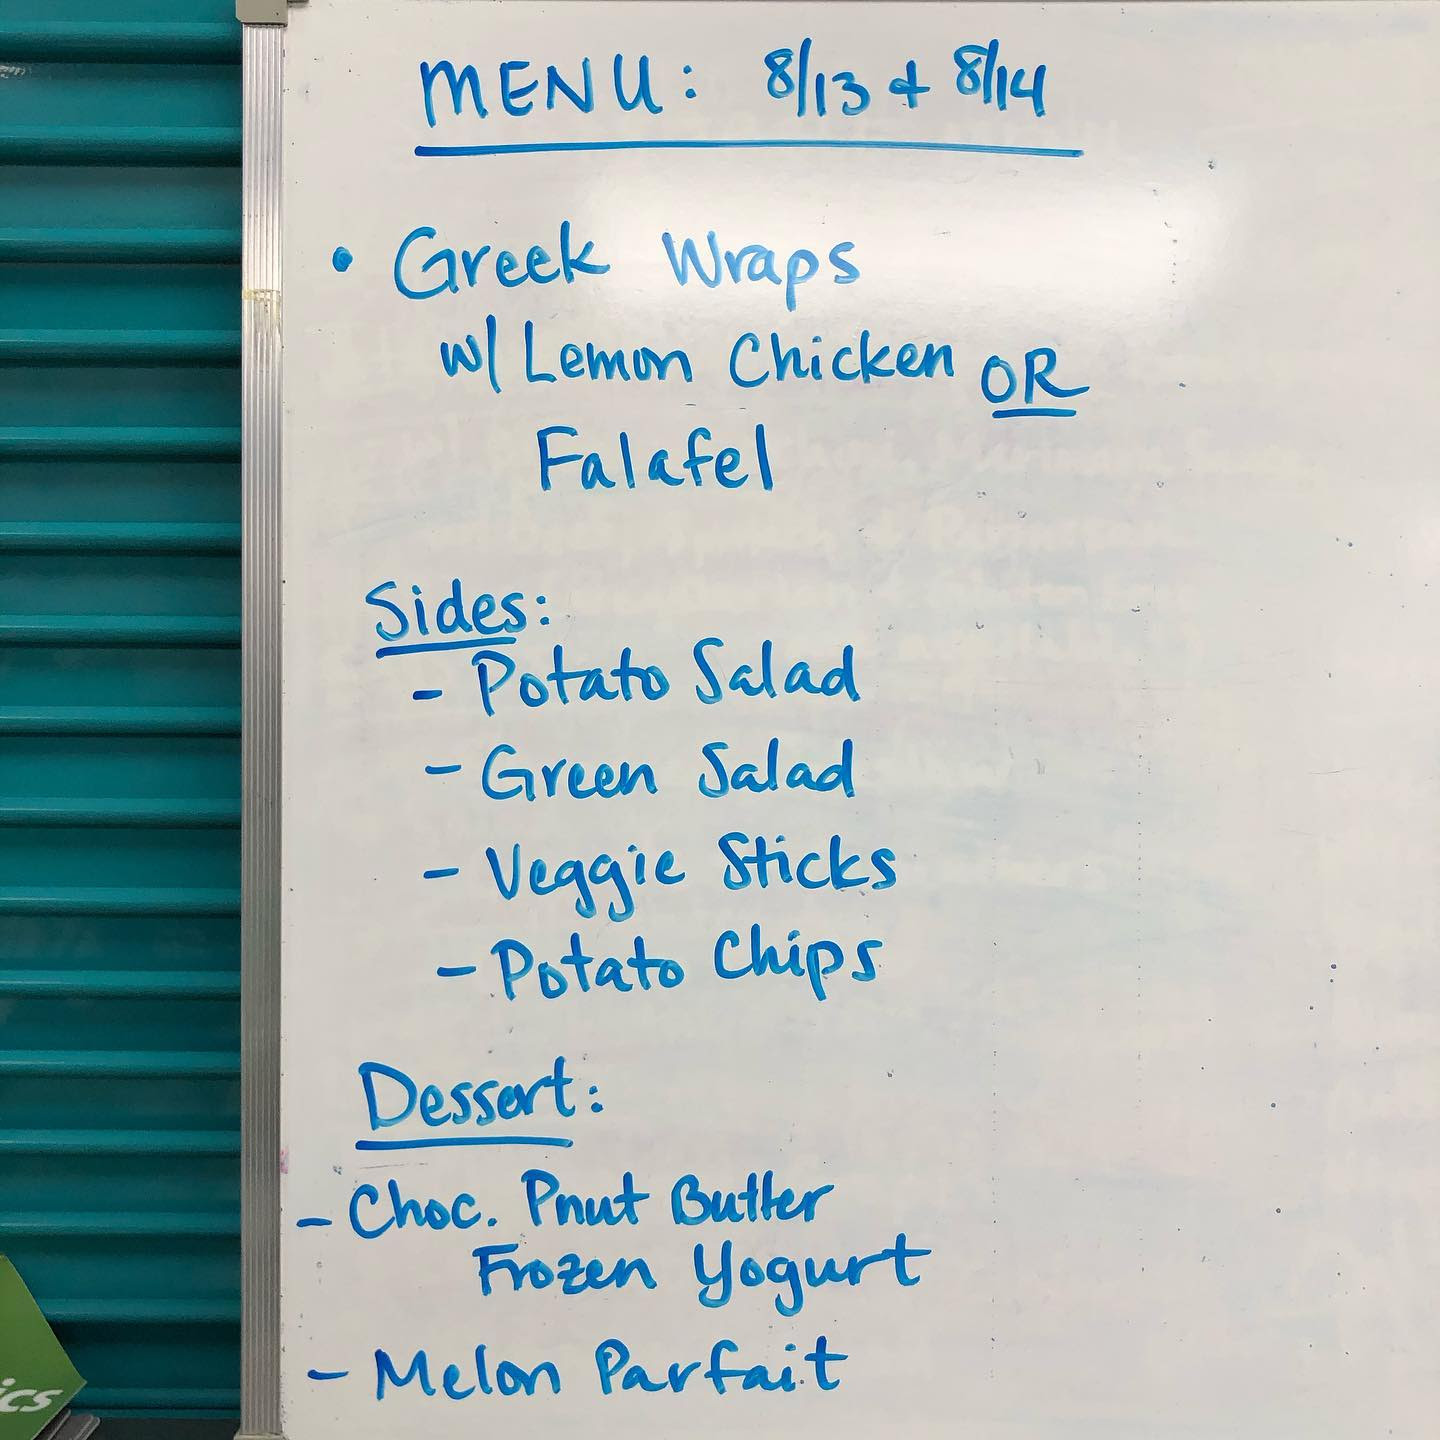 MENU: 8/13 + 8/14
• Greek Wraps
w/ Lemon Chicken OR
Falafel
Sides:
- Potato Salad
- Green Salad
- Veggie Sticks
- Potato Chips
Dessert:
- Choc. Pnut Butter
Frozen Yogurt
- Melon Parfait
ics